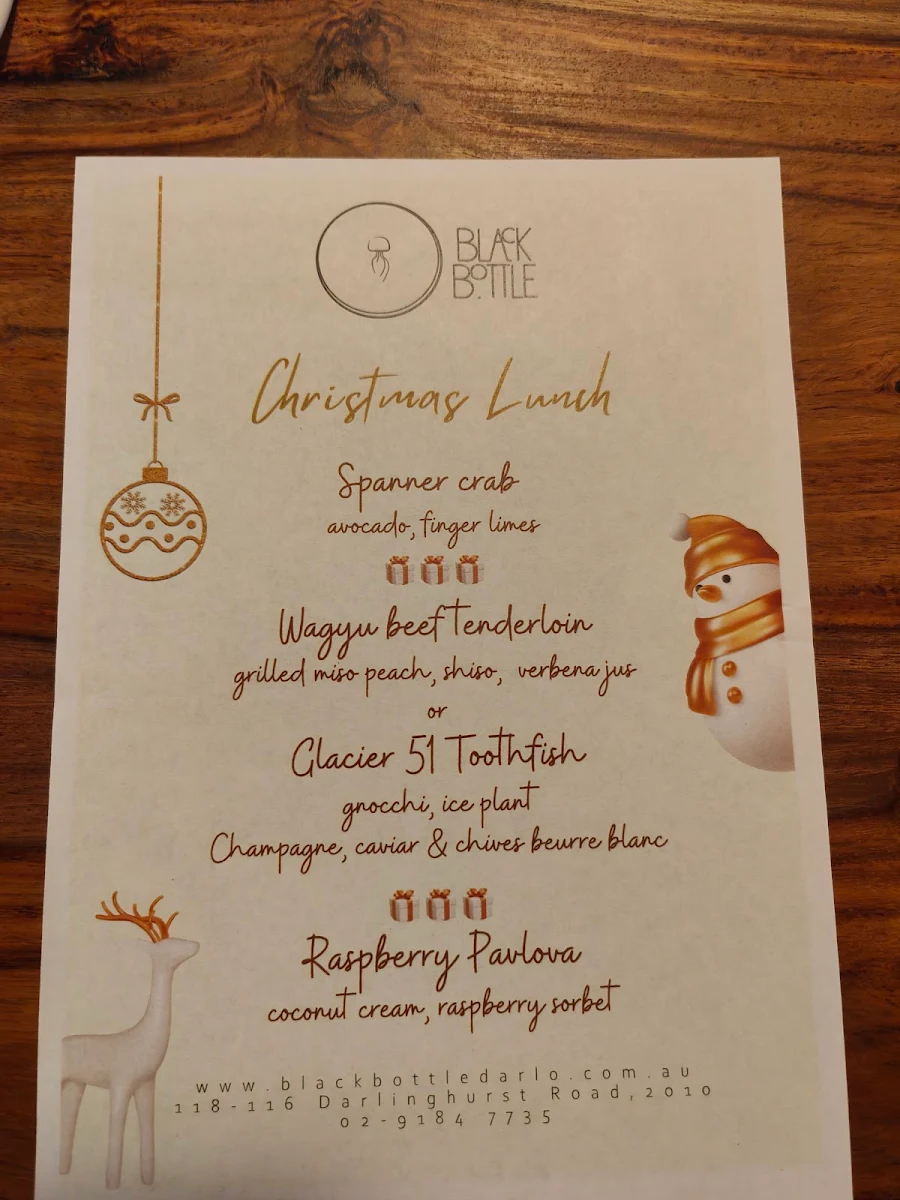 BLACK
BOTTLE
Christmas Lunch
Spanner crab
avocado, finger limes
Wagyu beef Tenderloin
grilled miso peach, shiso, verbena jus
or
Glacier 51 Toothfish
gnocchi, ice plant
Champagne, caviar & chives beurre blanc
Raspberry Pavlova
coconut cream, raspberry sorbet
www.blackbottledarlo.com.au
118-116 Darlinghurst Road,2010
02-9184 7735